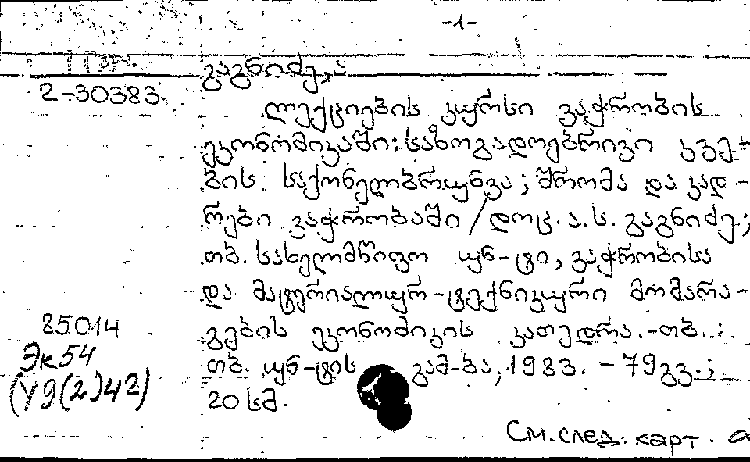 -1-
გაგნიძე, ა
2-30383
ლექციების კურსი ვაჭრობის
ეკონომიკაში: საზოგადოებრივი კვე-
ბის საქონელბრუნვა; შრომა და კად-
რები ვაჭრობაში / დოც. ა. ს. გაგნიძე.;
თბ. სახელმწიფო უნ-ტი, ვაჭრობისა
და მატერიალურ-ტექნიკური მომარა-
გების ეკონომიკის კათედრა. - თბ. :
თბ. უნ-ტის გამ-ბა, 1983. - 79გვ. ;
20 სმ.
85014
Эк54
(У9(2)42)
См. след. карт.